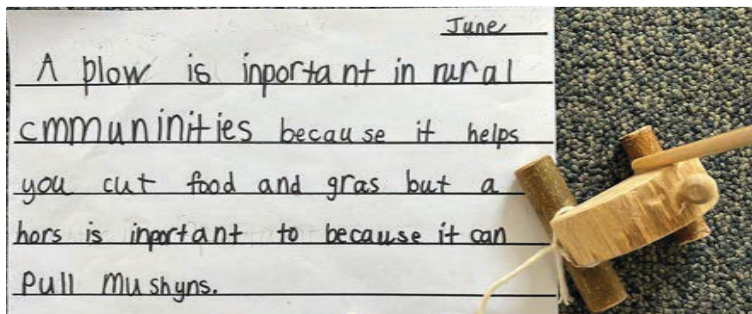 June
A plow is inportant in rural
cmmuninities because it helps
you cut food and gras but a
hors is inportant to because it can
pull mushyns.